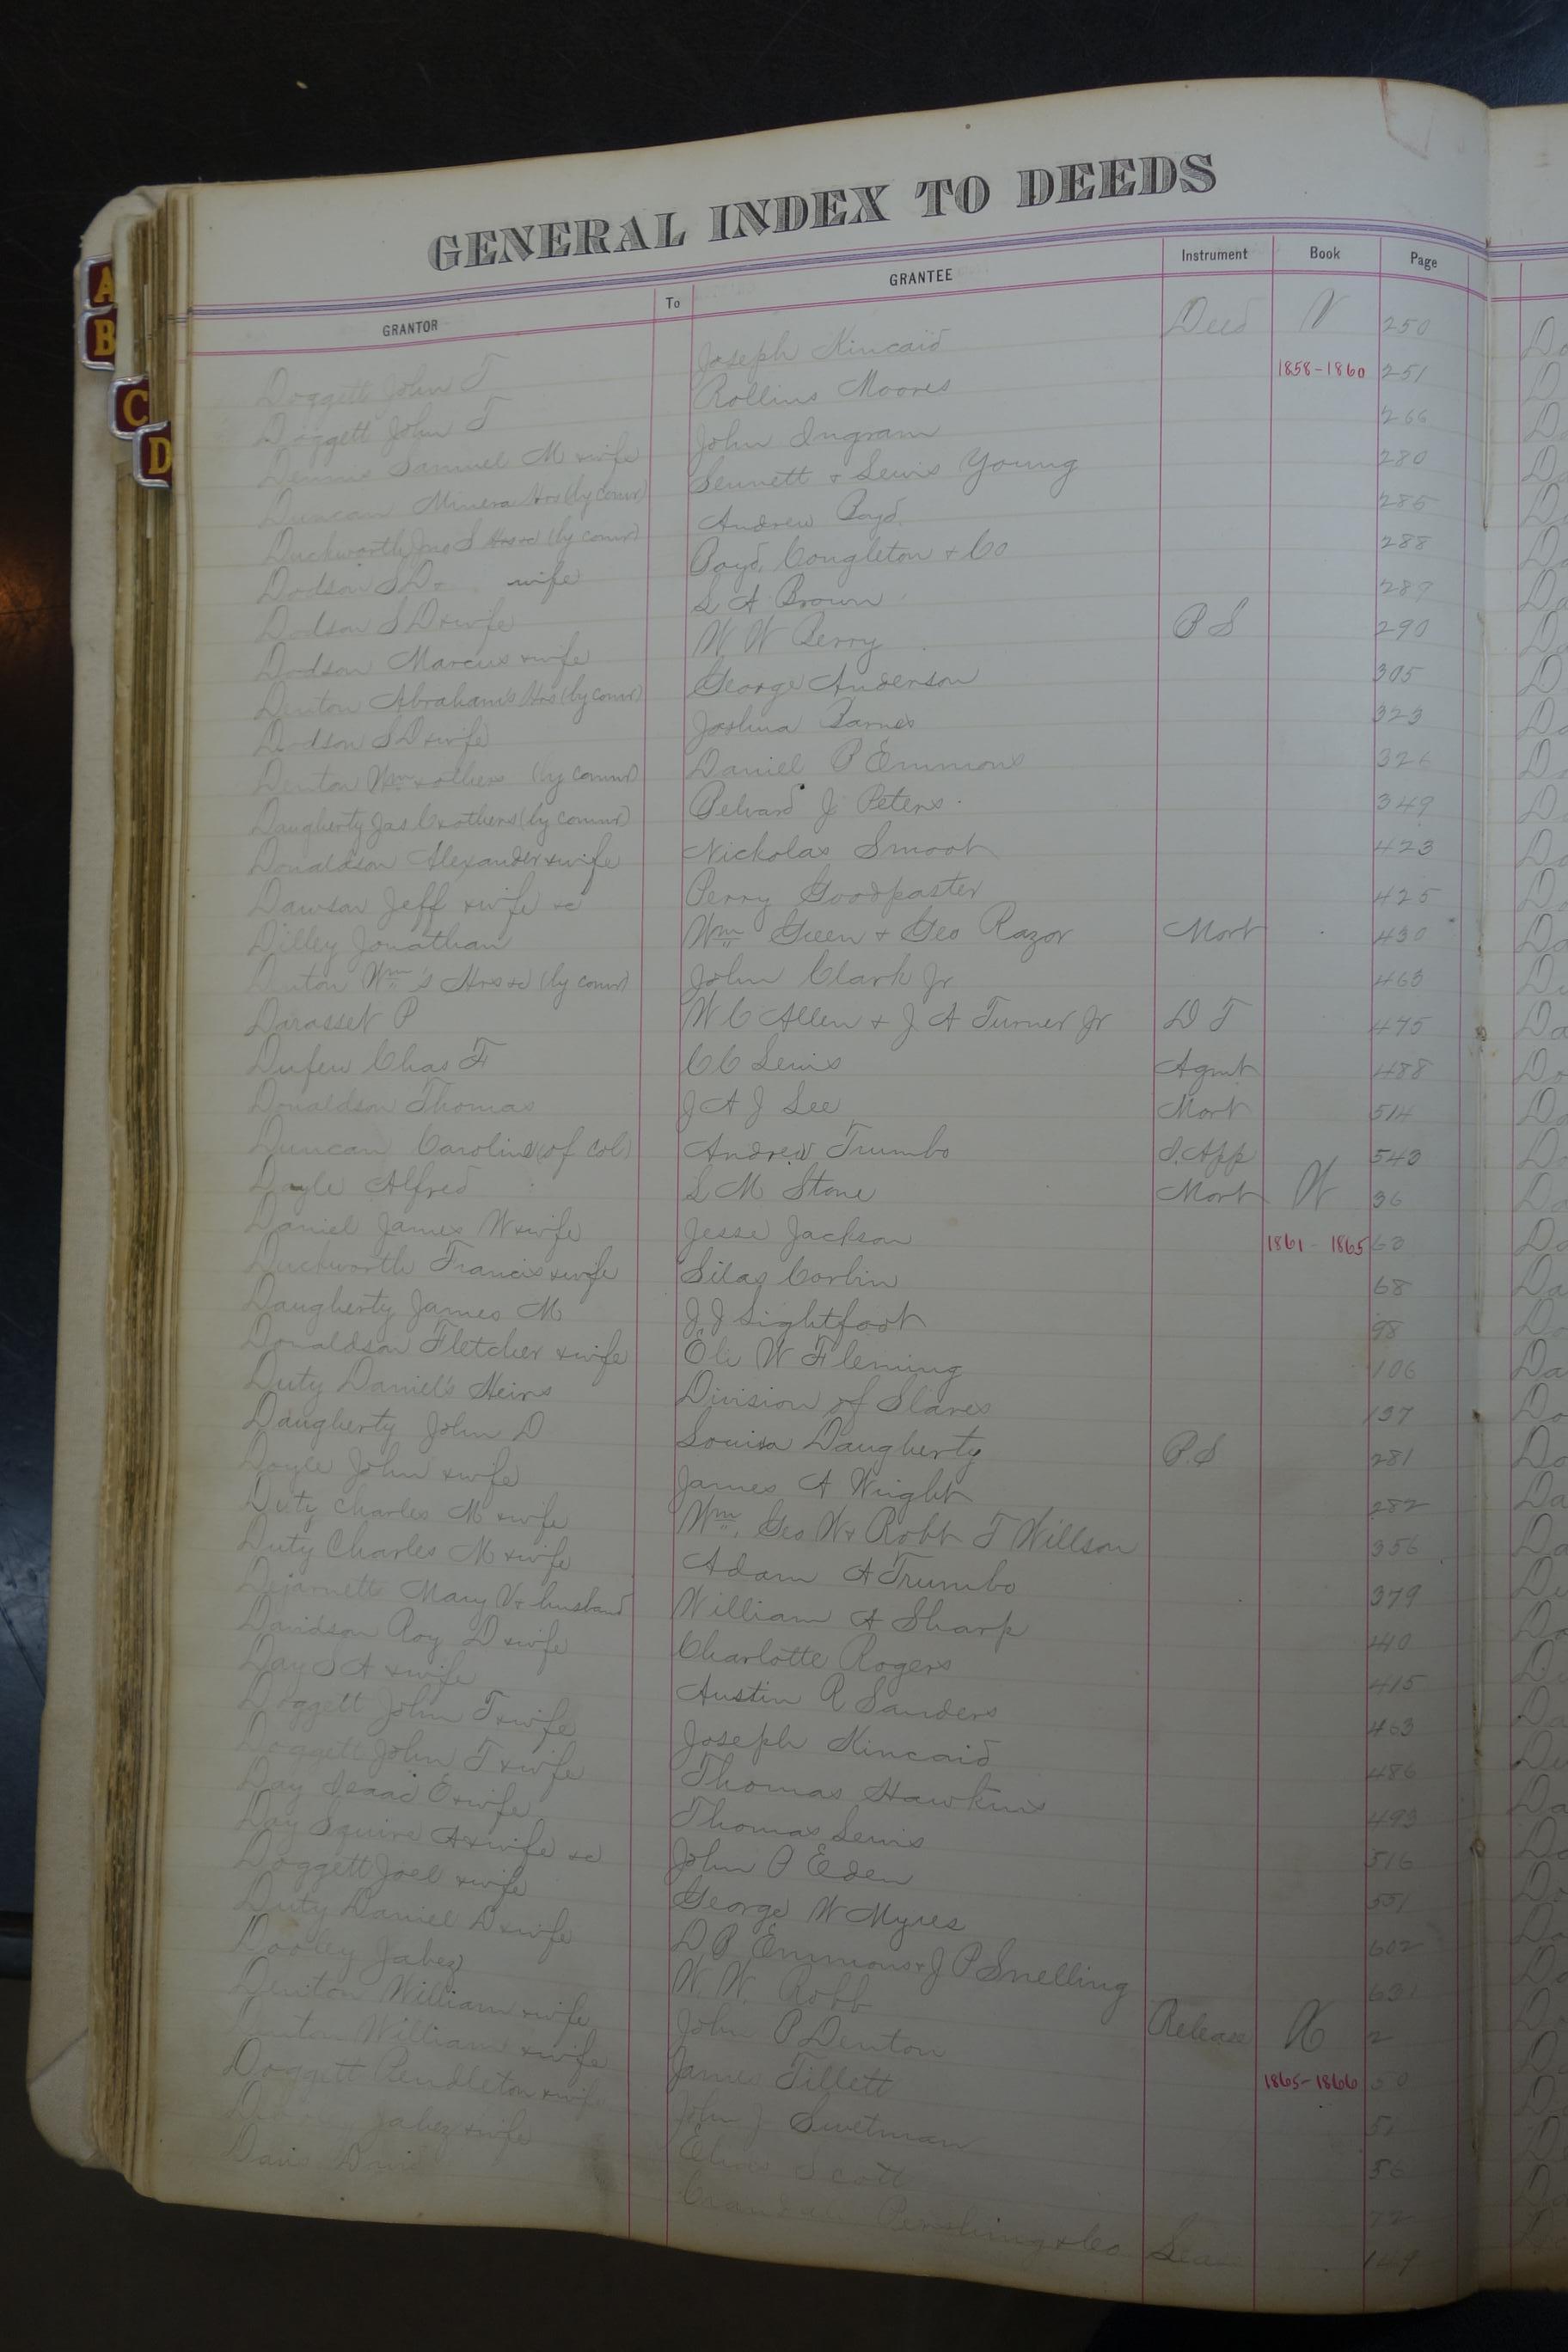 GENERAL INDEX TO DEEDS
GRANTOR To GRANTEE Instrument Book Page
Doggett John T Joseph Kincaid Deed V 250
Doggett John T Rollins Moores 1858-1860 251
Dennis Samuel M & wife John Ingram 266
Duncan Minerva Hrs (by comr) Sennett & Lewis Young 280
Duckworth Jno S Hrs &c (by comr) Andrew Boyd 285
Dodson S D & wife Boyd, Congleton & Co 288
Dodson S D & wife S A Brown 289
Dodson Marcus & wife W W Berry P S 290
Denton Abraham's Hrs (by comr) George Anderson 305
Dodson S D & wife Joshua Barnes 323
Denton Wm & others (by comr) Daniel P Emmons 326
Daugherty Jas C & others (by comr) Belvard J Peters 349
Donaldson Alexander & wife Nickolas Smoot 423
Dawson Jeff & wife &c Perry Goodpaster 425
Dilley Jonathan Wm Green & Geo Razor Mort 430
Denton Wm's Hrs &c (by comr) John Clark Jr 463
Darasset P W C Allen & J A Turner Jr D T 475
Dufeu Chas F C C Lewis Agmt 488
Donaldson Thomas J A J Lee Mort 514
Duncan Caroline (of col) Andrew Trumbo I.App 543
Doyle Alfred S M Stone Mort W 36
Daniel James W & wife Jesse Jackson 1861-1865 60
Duckworth Francis & wife Silas Corbin 68
Daugherty James M J J Lightfoot 98
Donaldson Fletcher & wife Eli W Fleming 106
Duty Daniel's Heirs Division of Slaves 137
Daugherty John D Louisa Daugherty P.S 281
Doyle John & wife James A Wright 282
Duty Charles M & wife Wm, Geo W & Robt T Willson 356
Duty Charles M & wife Adam A Trumbo 379
Dejarnett Mary V & husband William A Sharp 410
Davidson Roy D & wife Charlotte Rogers 415
Day S A & wife Austin R Sanders 463
Doggett John T & wife Joseph Kincaid 486
Doggett John T & wife Thomas Hawkins 493
Day Isaac E & wife Thomas Lewis 516
Day Squire A & wife &c John P Eden 551
Doggett Joel & wife George W Myres 602
Duty Daniel D & wife D P Emmons & J P Snelling 631
Dooley Jabez W. W. Robb Release X 2
Denton William & wife John P Denton 1865-1866 50
Denton William & wife James Tillett 51
Doggett Pendleton & wife John J Swetman 56
Jabez & wife Elias Scott 72
Davis Pershing & Co Leas 149